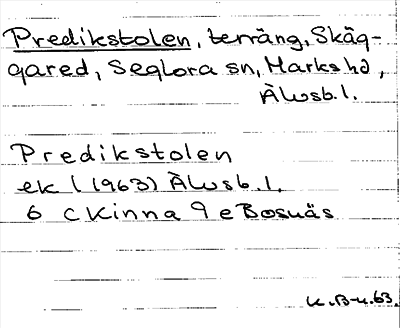 Predikstolen, terräng, Skäg-
gared, Seglora sn, Marks hd,
Älvsb. l.
Predikstolen
ek l (1963) Älvsb. l.
6 C Kinna 9 e Bosnäs
K.B-u.63.